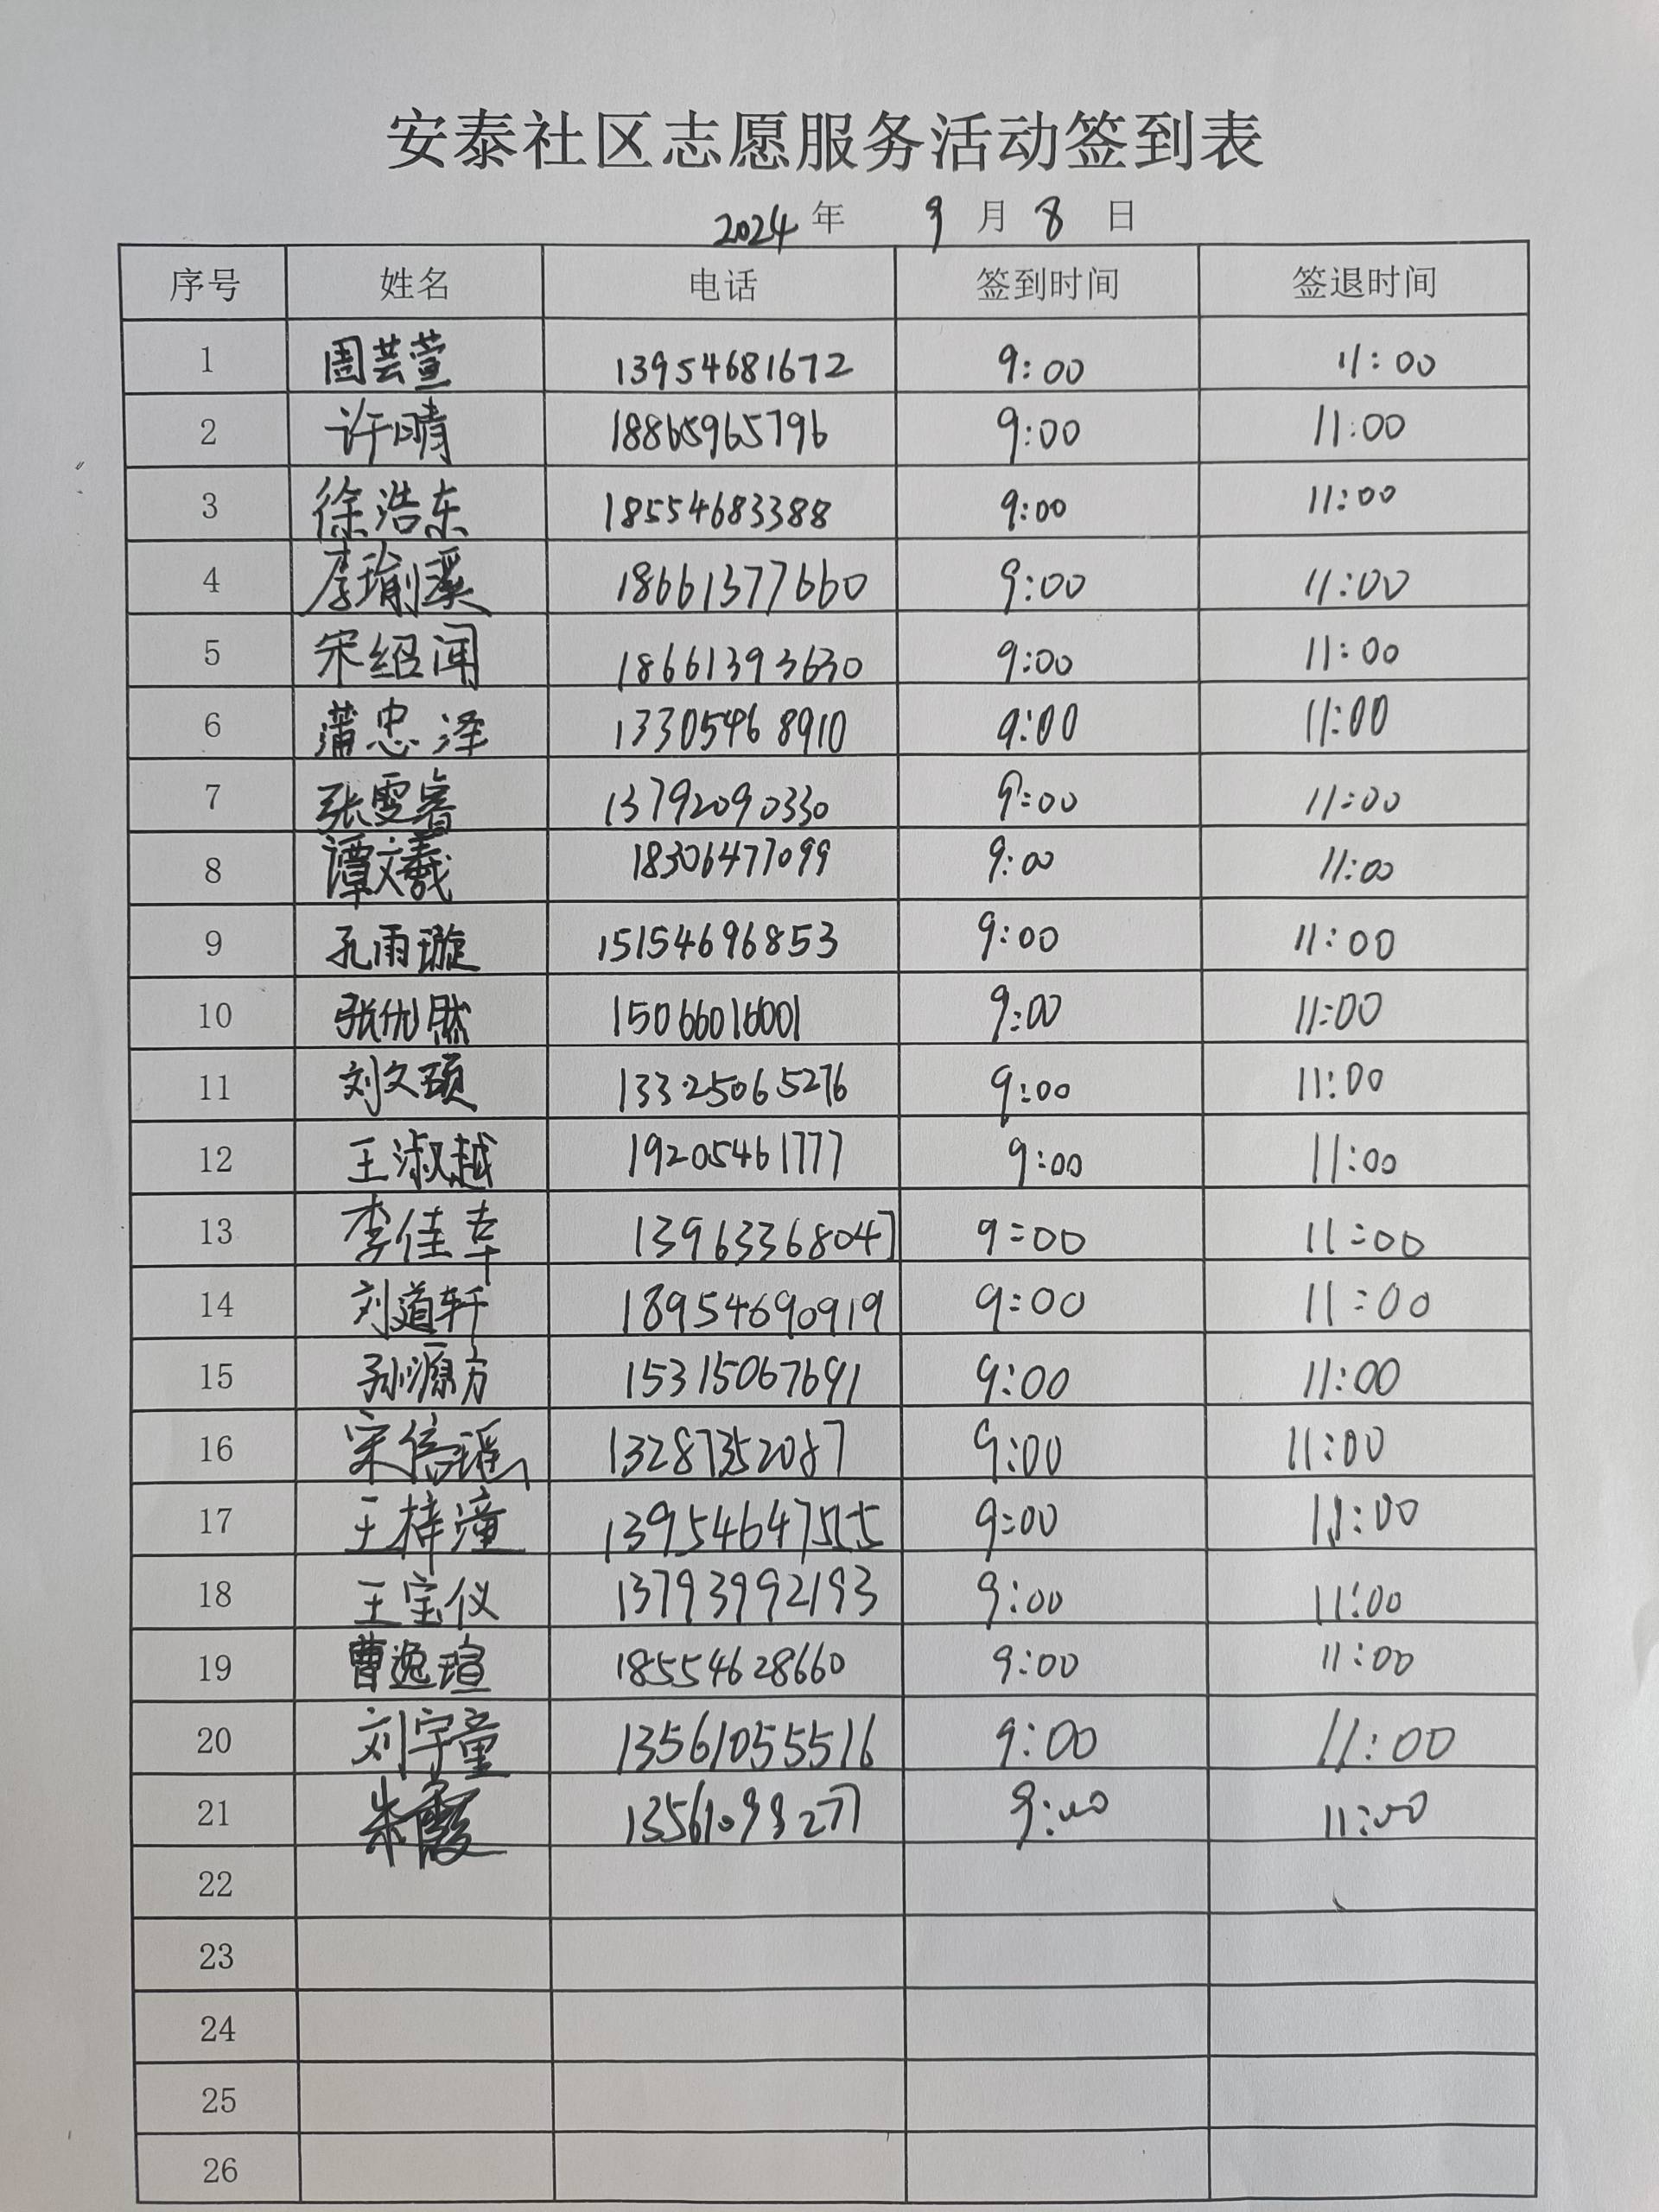 安泰社区志愿服务活动签到表
2024 年 9 月 8 日
序号 姓名 电话 签到时间 签退时间
1 周芸萱 13954681672 9:00 11:00
2 许晴 18865965796 9:00 11:00
3 徐浩东 18554683388 9:00 11:00
4 李瑜溪 18661377660 9:00 11:00
5 宋绍闻 18661393630 9:00 11:00
6 蒲忠泽 13305468910 9:00 11:00
7 张雯睿 13792090330 9:00 11:00
8 谭文羲 18306477099 9:00 11:00
9 孔雨璇 15154696853 9:00 11:00
10 张优然 15066016001 9:00 11:00
11 刘文硕 13325065276 9:00 11:00
12 王淑越 19205461777 9:00 11:00
13 13963368047 9:00 11:00
14 刘道轩 18954690919 9:00 11:00
15 孙源方 15315067691 9:00 11:00
16 13287352087 9:00 11:00
17 王梓潼 9:00 11:00
18 王宝仪 13793992193 9:00 11:00
19 曹逸瑄 18554628660 9:00 11:00
20 刘宇童 13561055516 9:00 11:00
21 朱霞 9:00 11:00
22
23
24
25
26